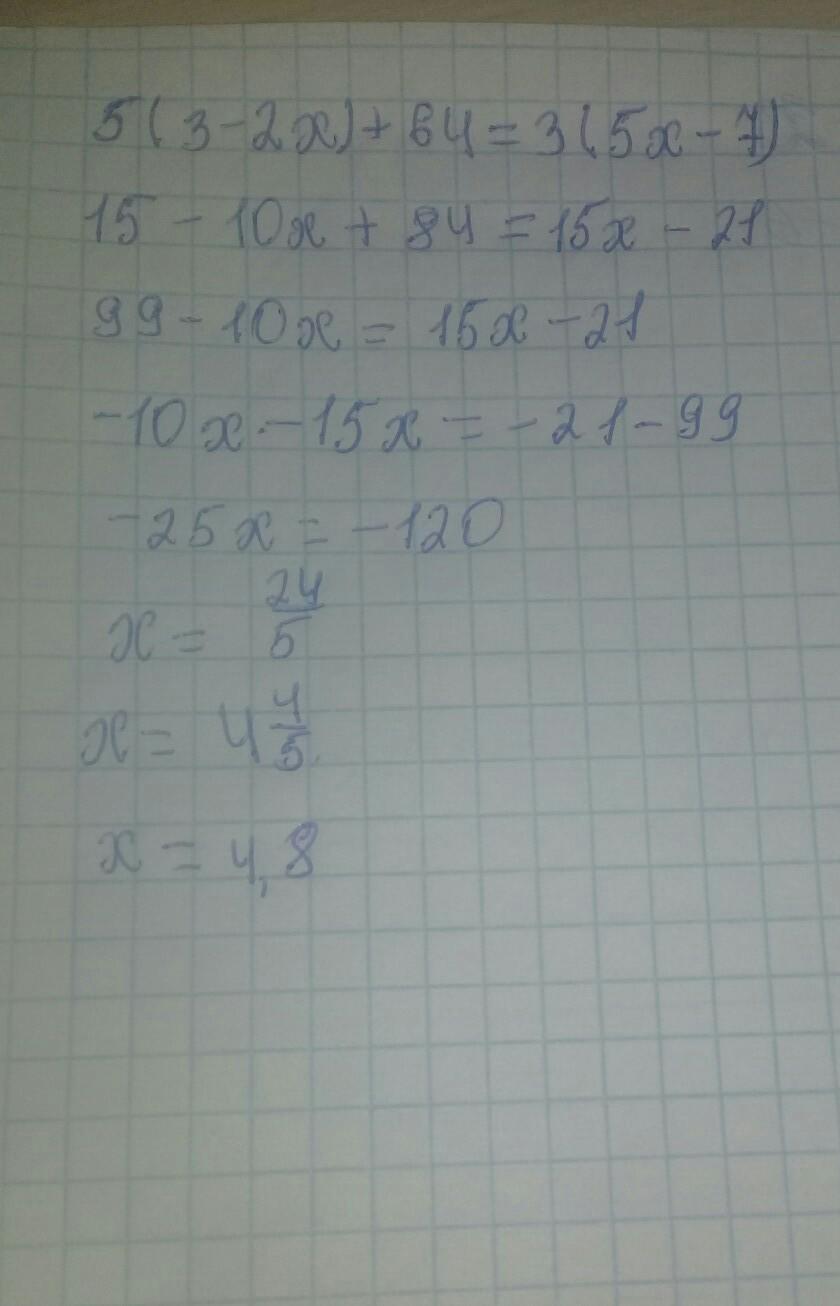 5(3-2x)+64=3(5x-7)
15-10x+84=15x-21
99-10x=15x-21
-10x-15x=-21-99
-25x=-120
x=24/5
x=4 4/5
x=4,8